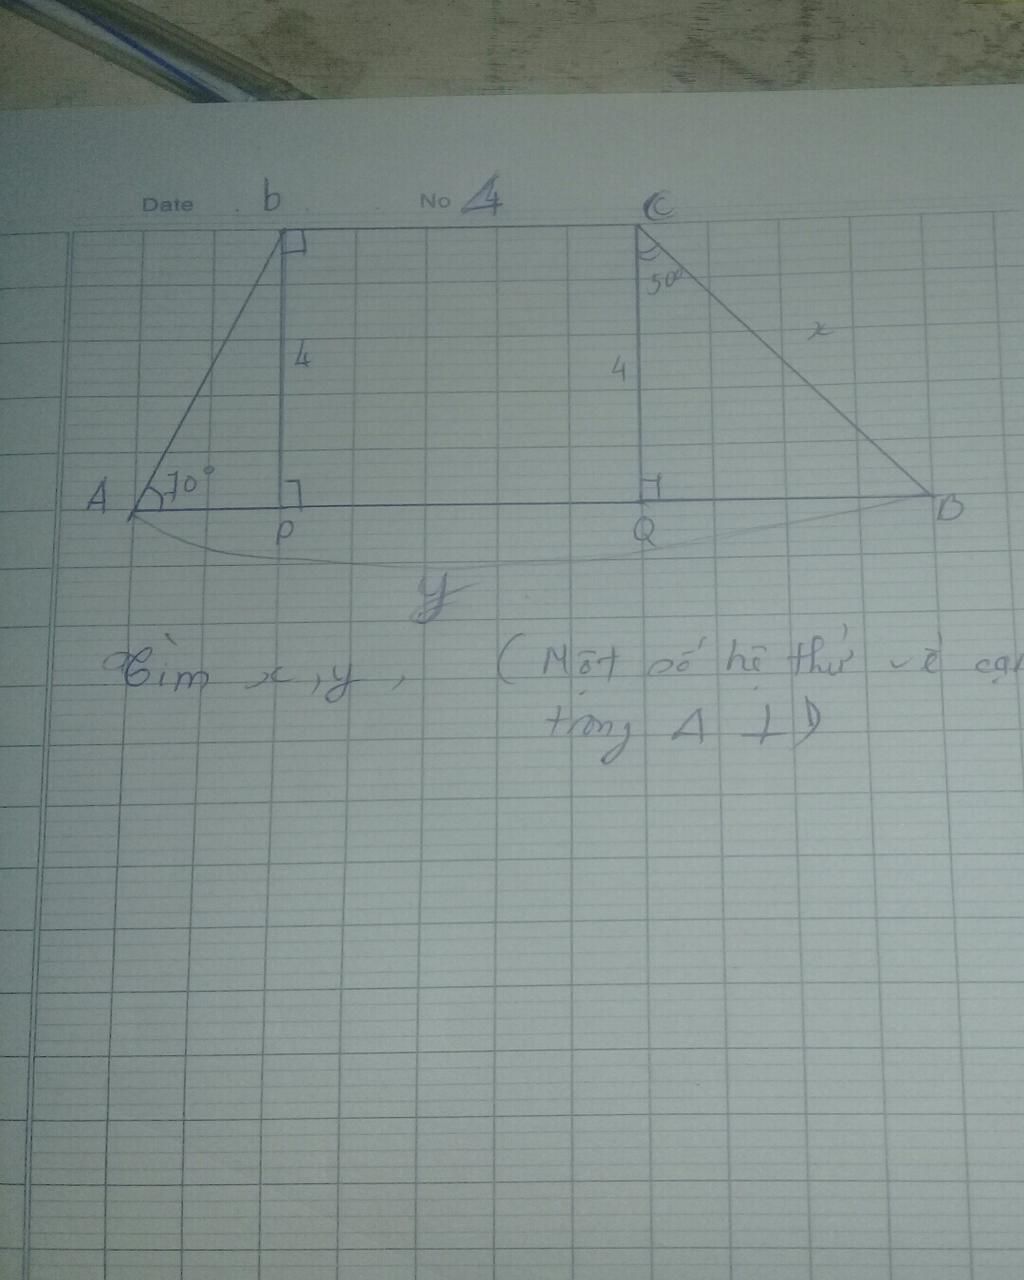 Date b No 4 C
50°
x
4
4
A 70°
P Q D
y
Tìm x, y, (Một số hệ thứ về cạn
trong Δ ⊥)